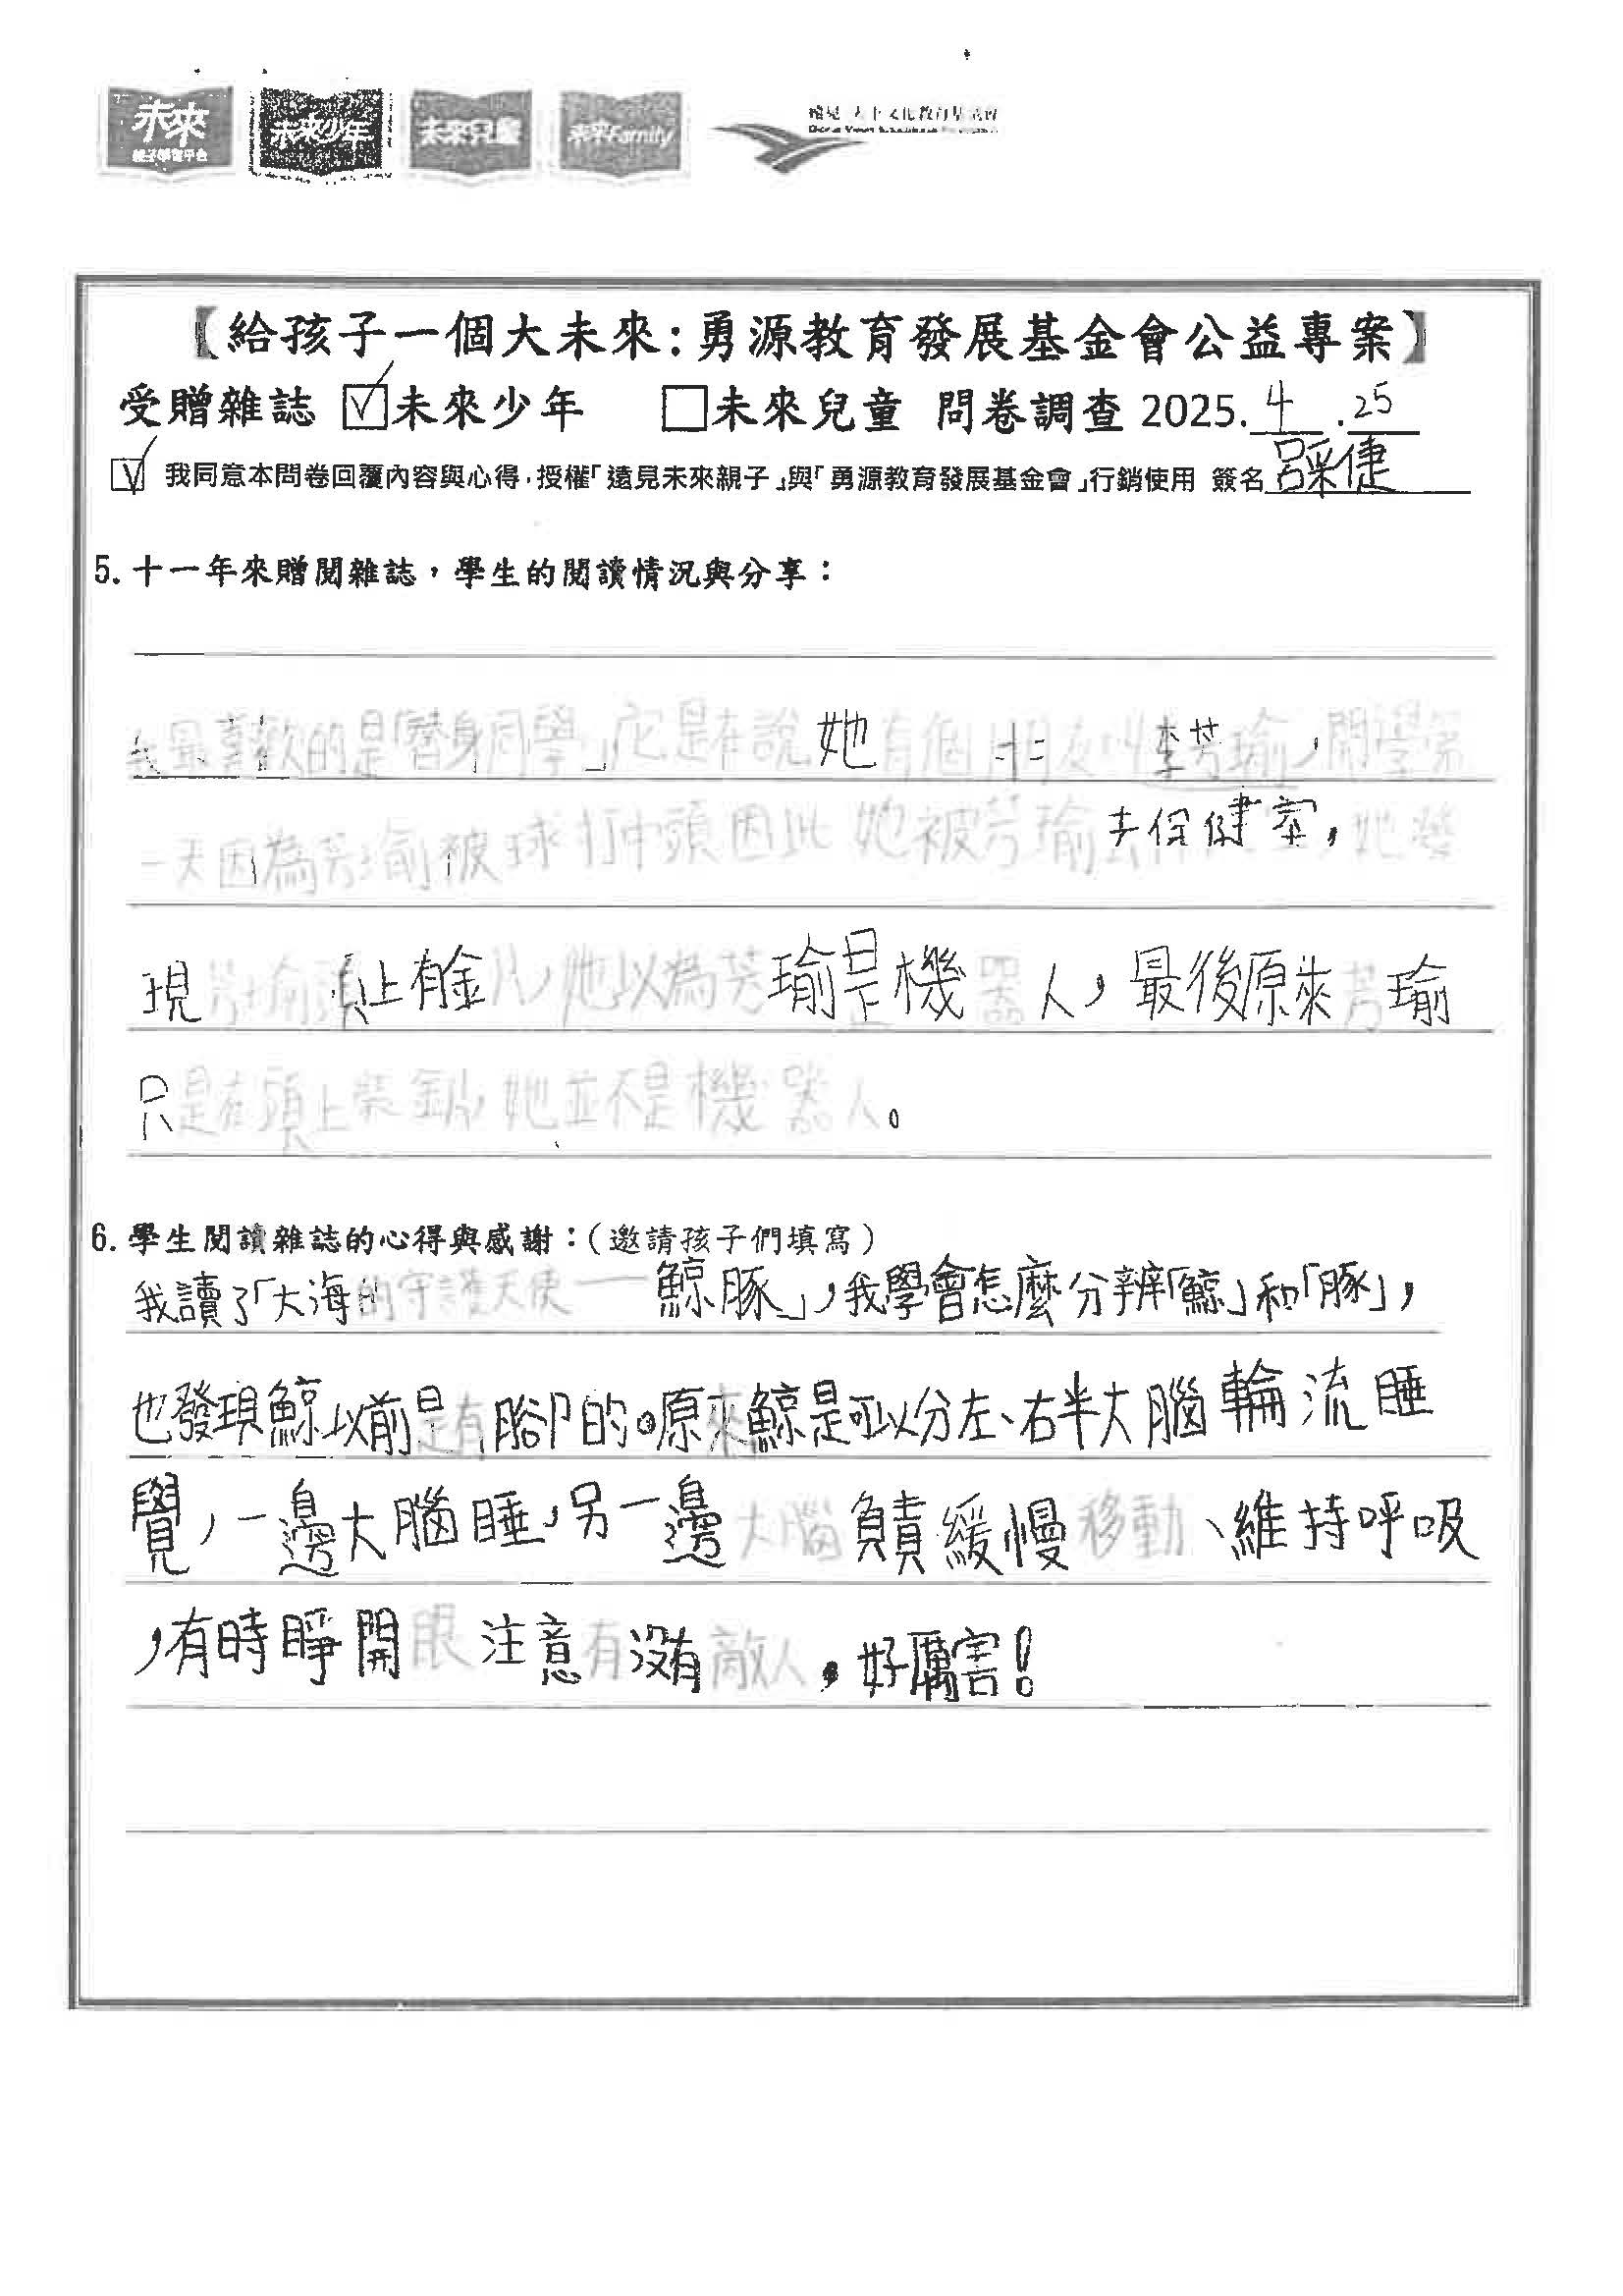 未來
親子學習平台
未來少年
未來兒童
未來Family
遠見‧天下文化教育基金會
【給孩子一個大未來:勇源教育發展基金會公益專案】
受贈雜誌 ☑未來少年 □未來兒童 問卷調查 2025.4.25
☑ 我同意本問卷回覆內容與心得,授權「遠見未來親子」與「勇源教育發展基金會」行銷使用 簽名 呂采倢
5. 十一年來贈閱雜誌,學生的閱讀情況與分享:
我最喜歡的是「替身同學」它是在說她有個朋友叫李芳瑜,開學第
一天因為芳瑜被球打中頭因此她被芳瑜去保健室,她發
現芳瑜頭上有金片,她以為芳瑜是機器人,最後原來芳瑜
只是在頭上裝釦,她並不是機器人。
6. 學生閱讀雜誌的心得與感謝:(邀請孩子們填寫)
我讀了「大海的守護天使——鯨豚」,我學會怎麼分辨「鯨」和「豚」,
也發現鯨以前是有腳的。原來鯨是可以分左、右半大腦輪流睡
覺,一邊大腦睡,另一邊大腦負責緩慢移動、維持呼吸
,有時睜開眼注意有沒有敵人,好厲害!